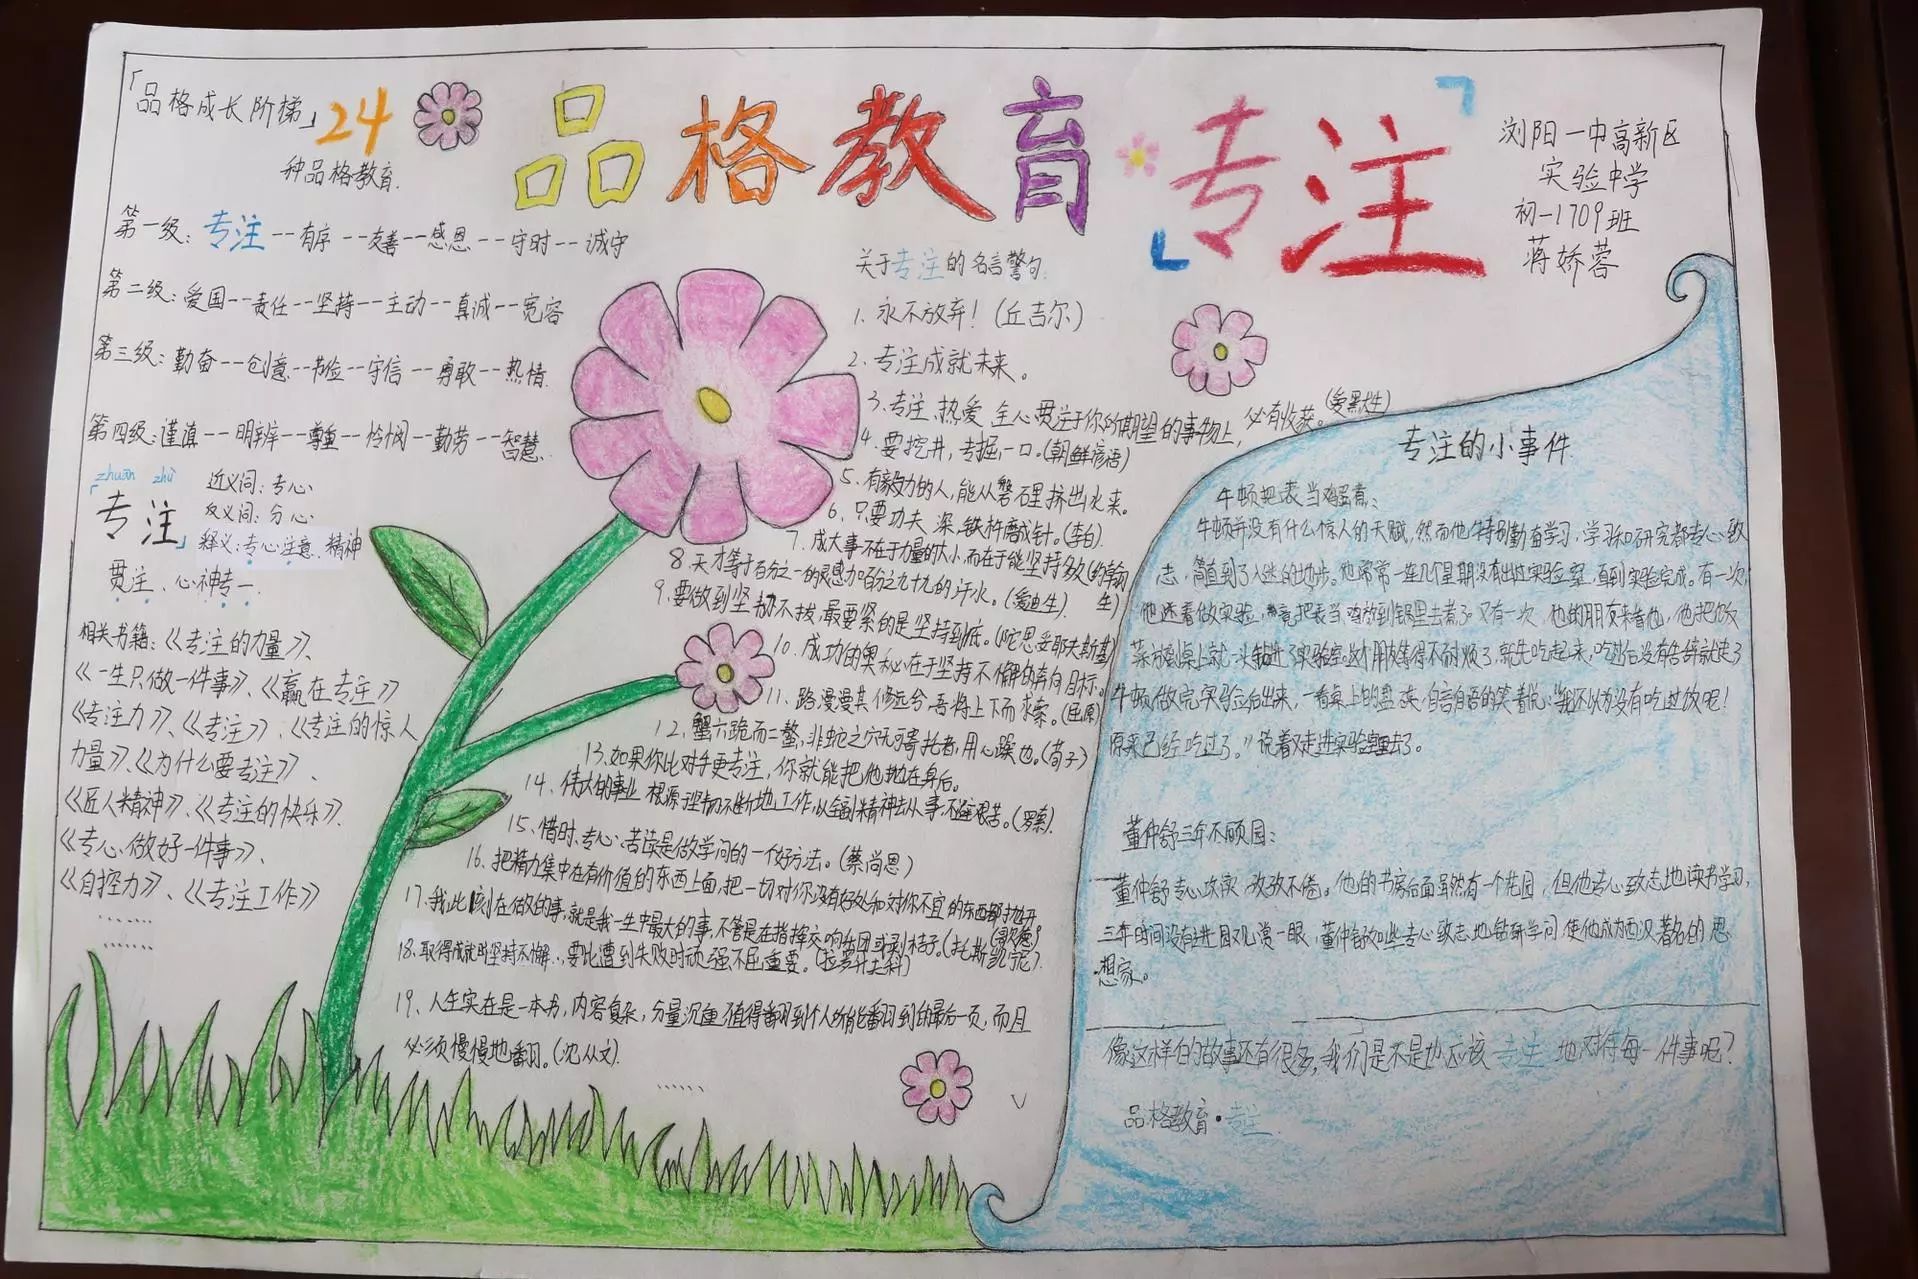 「品格成长阶梯」24
种品格教育.
品格教育「专注」
浏阳一中高新区
实验中学
初一1709班
蒋娇蓉
第一级：专注--有序--友善--感恩--守时--诚守
第二级：爱国--责任--坚持--主动--真诚--宽容
第三级：勤奋--创意--节俭--守信--勇敢--热情.
第四级：谨慎--明辨--尊重--怜悯--勤劳--智慧.
zhuān zhù
「专注」
近义词：专心
反义词：分心
释义：专心注意.精神
贯注、心神专一.
相关书籍：《专注的力量》、
《一生只做一件事》、《赢在专注》
《专注力》、《专注》、《专注的惊人
力量》、《为什么要专注》、
《匠人精神》、《专注的快乐》、
《专心做好一件事》、
《自控力》、《专注工作》
……
……
关于专注的名言警句.
1、永不放弃！(丘吉尔)
2、专注成就未来。
3、专注、热爱、全心贯注于你所期望的事物上，必有收获。(爱默生)
4、要挖井，专掘一口。(朝鲜谚语)
5、有毅力的人，能从磐石里挤出水来。
6、只要功夫深，铁杵磨成针。(李白).
7、成大事不在于力量的大小，而在于能坚持多久(约翰
生)
8、天才等于百分之一的灵感加百分之九十九的汗水。(爱迪生)
9、要做到坚韧不拔，最要紧的是坚持到底。(陀思妥耶夫斯基)
10、成功的奥秘在于坚持不懈的奔向目标。
11、路漫漫其修远兮，吾将上下而求索。(屈原)
12、蟹六跪而二螯，非蛇之穴无可寄托者，用心躁也。(荀子)
13、如果你比对手更专注，你就能把他抛在身后。
14、伟大的事业根源于坚韧不断地工作，以全副精神去从事，不避艰苦。(罗素).
15、惜时、专心、苦读是做学问的一个好方法。(蔡尚思)
16、把精力集中在有价值的东西上面，把一切对你没有好处和对你不宜的东西都抛开
(歌德)
17、我此刻在做的事，就是我一生中最大的事，不管是在指挥交响乐团或剥桔子。(托斯凯宁尼).
18、取得成就时坚持不懈，要比遭到失败时顽强不屈重要。(拉罗什夫科)
19、人生实在是一本书，内容复杂，分量沉重，值得翻到个人所能翻到的最后一页，而且
必须慢慢地翻。(沈从文).
……
专注的小事件.
牛顿把表当鸡蛋煮：
牛顿并没有什么惊人的天赋，然而他特别勤奋学习，学习和研究都专心致
志，简直到了入迷的地步。他常常一连几个星期没有出过实验室，直到实验完成。有一次，
他迷着做实验，竟把表当鸡放到锅里去煮了。又有一次，他的朋友来看他，他把饭
菜放到桌上就一头钻进了实验室。这个朋友等得不耐烦了，就先吃起来，吃过后没有告辞就走了
牛顿做完实验后出来，一看桌上的盘子，自言自语的笑着说：“我还以为没有吃过饭呢！
原来已经吃过了。”说着又走进实验室里去了。
董仲舒三年不顾园：
董仲舒专心攻读，孜孜不倦。他的书房后面虽然有一个花园，但他专心致志地读书学习，
三年时间没有进园观赏一眼，董仲舒如此专心致志地钻研学问，使他成为西汉著名的思
想家。
像这样的故事还有很多，我们是不是也应该专注地对待每一件事呢？
品格教育·专注.